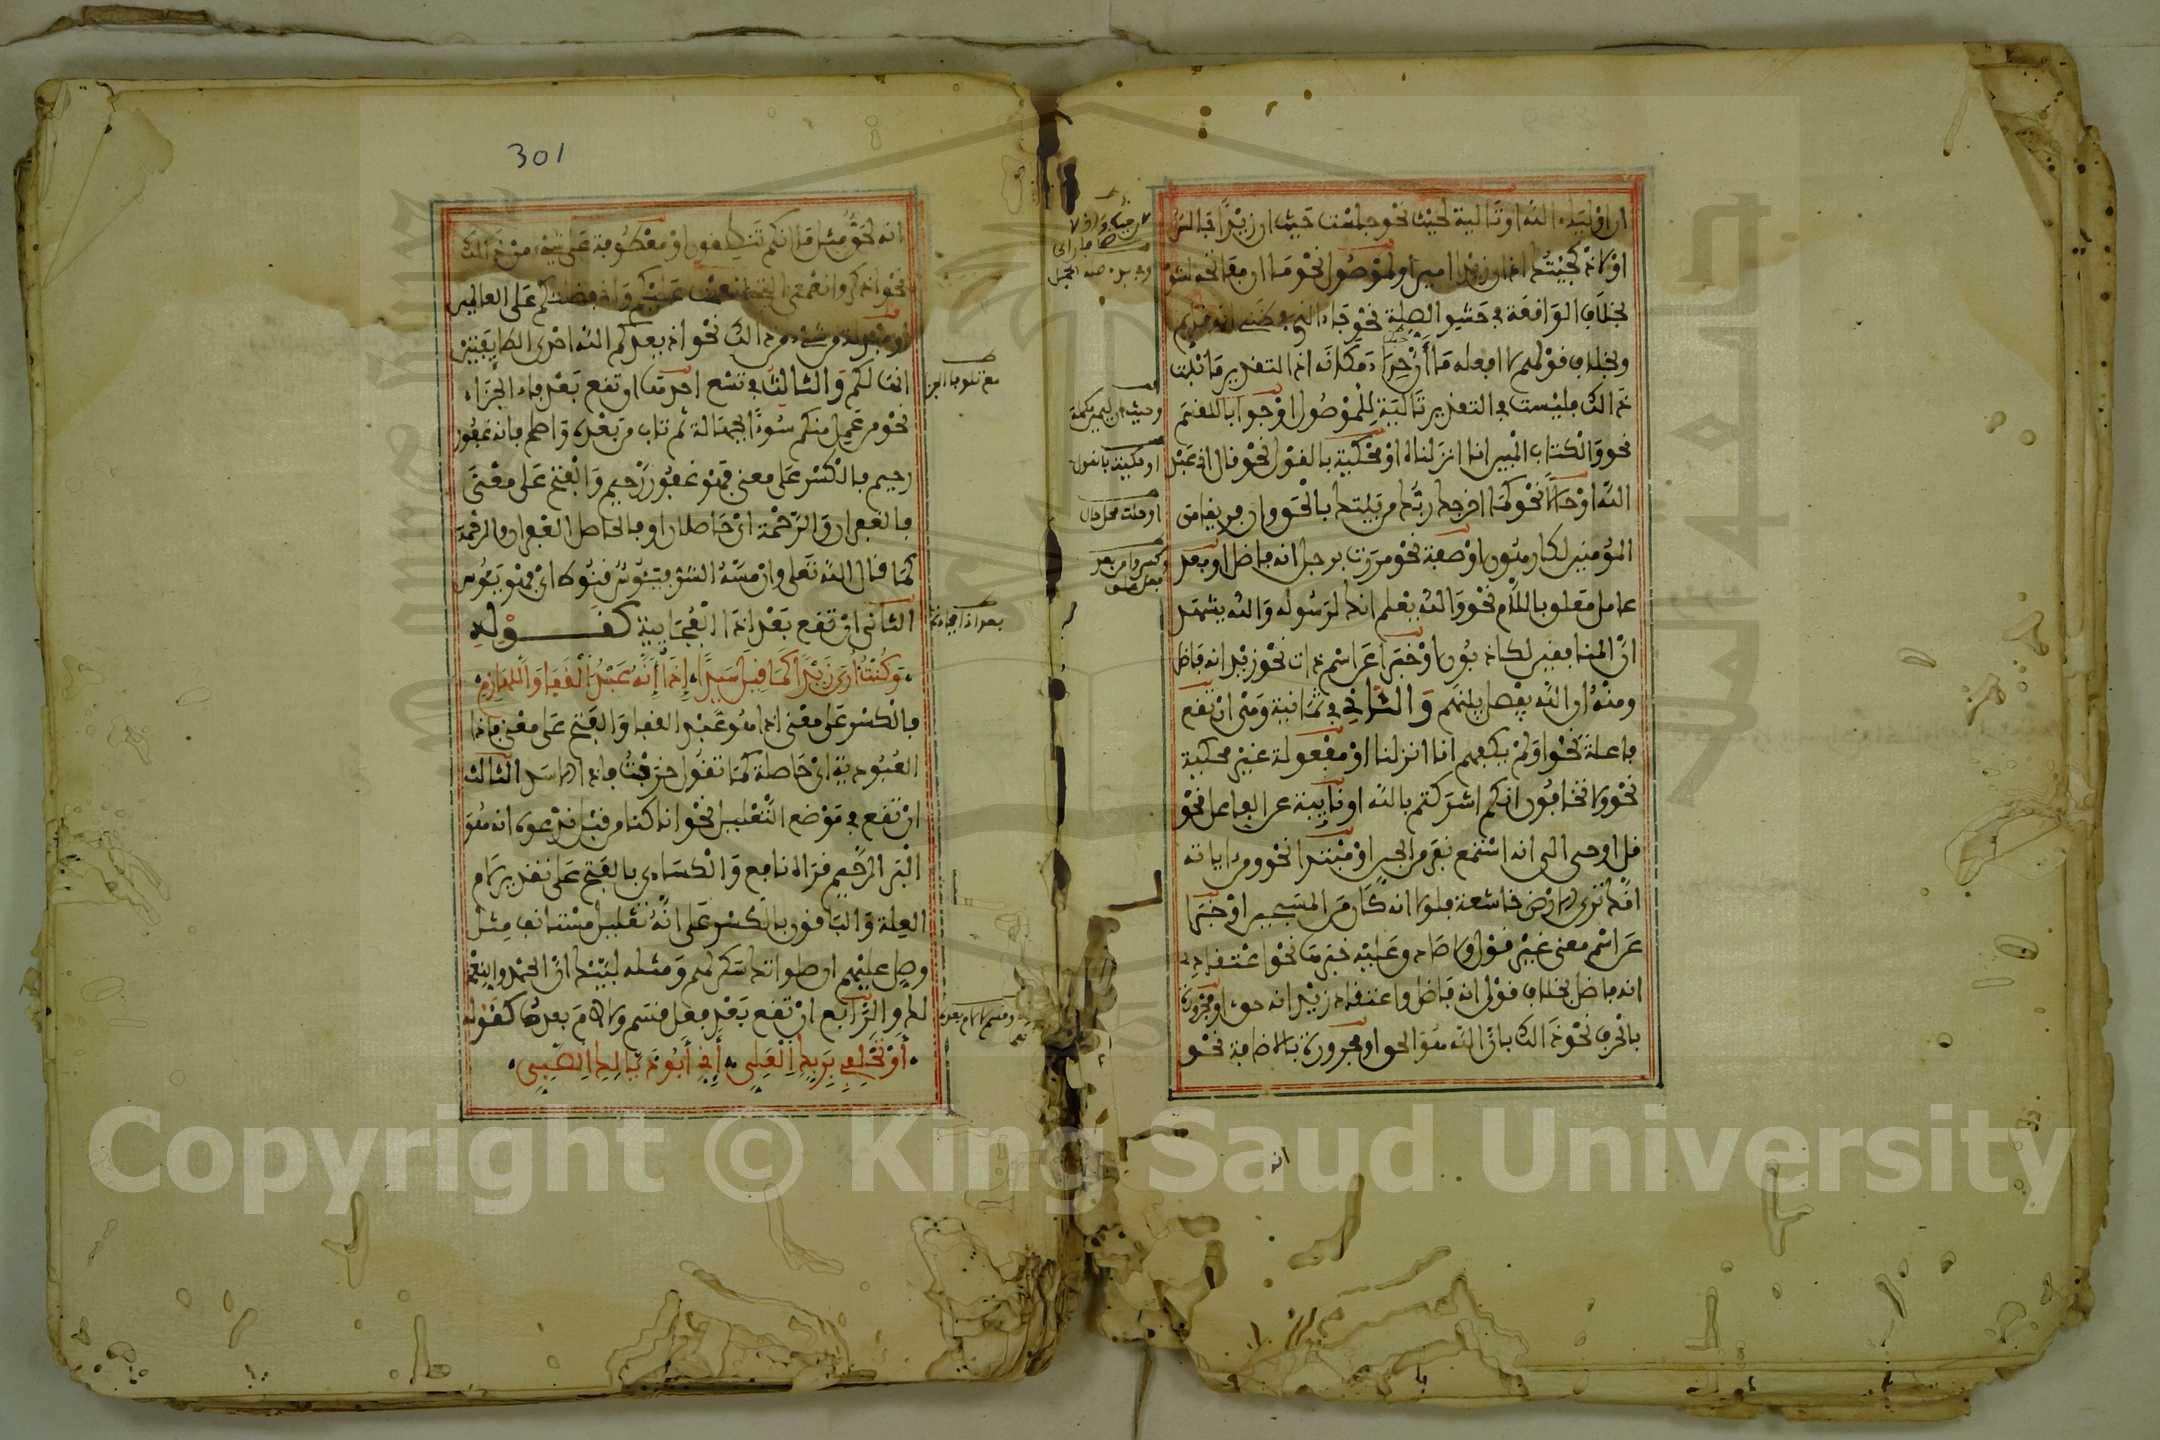 ان اولياء الله او تالية لحيث نحو جلست حيث ان زيدا جالس
او لاذ كجئتك اذ ان زيدا امير او لموصول نحو ما ان مفاتحه لتنوء
بخلاف الواقعة في حشو الصلة نحو جاء الذي عندي انه فاضل
وبخلاف قولهم لا افعله ما ان حراء مكانه اذ التقدير ما ثبت
ذالك فليست في التقدير تالية للموصول او جوابا لقسم
نحو والكتاب المبين انا انزلناه او محكية بالقول نحو قال اني عبد
الله او حالا نحو كما اخرجك ربك من بيتك بالحق وان فريقا من
المومنين لكارهون او صفة نحو مررت برجل انه فاضل او بعد
عامل معلق باللام نحو والله يعلم انك لرسوله والله يشهد
ان المنافقين لكاذبون او خبرا عن اسم ذات نحو زيد انه فاضل
ومنه ان الله يفصل بينهم والثاني في ثمانية وهي ان تقع
فاعلة نحو اولم يكفهم انا انزلنا او مفعولة غير محكية
نحو ولا تخافون انكم اشركتم بالله او نايبة عن الفاعل نحو
قل اوحي الي انه استمع نفر من الجن او مبتدا نحو ومن اياته
انك ترى الارض خاشعة فلولا انه كان من المسبحين او خبرا
عن اسم معنى غير قول ولا صادق عليه خبرها نحو اعتقادي
انه فاضل بخلاف قولي انه فاضل واعتقاد زيد انه حق او مجرورة
بالحرف نحو ذالك بان الله هو الحق او مجرورة بالاضافة نحو
انه
او مكية بالقول
او حلت محل حال
وكسروا من بعد
فعل علقا
301
انه لحق مثل ما انكم تنطقون او معطوفة على شيء من ذالك
نحو اذكروا نعمتي التي انعمت عليكم واني فضلتكم على العالمين
او مبدلة من شيء من ذالك نحو اذ يعدكم الله احدى الطايفتين
انها لكم والثالث في تسع احدها ان تقع بعد فاء الجزاء
نحو من عمل منكم سوءا بجهالة ثم تاب من بعده واصلح فانه غفور
رحيم فالكسر على معنى فهو غفور رحيم والفتح على معنى
فالغفران والرحمة اي حاصلان او فالحاصل الغفران والرحمة
كما قال الله تعلى وان مسه الشر فيئوس قنوط اي فهو يئوس
الثاني ان تقع بعد اذا الفجايية كقوله
وكنت ارى زيدا كما قيل سيدا اذا انه عبد القفا واللهازم
فالكسر على معنى اذا هو عبد القفا والفتح على معنى فاذا
العبودية اي حاصلة كما تقول خرجت فاذا الاسد الثالث
ان تقع في موضع التعليل نحو انا كنا من قبل ندعوه انه هو
البر الرحيم قراه نافع والكساءي بالفتح على تقدير لام
العلة والباقون بالكسر على انه تعليل مستانف مثل
وصل عليهم ان صلواتك سكن لهم ومثله لبيك ان الحمد والنعمة
لك والرابع ان تقع بعد فعل قسم ولا لام بعدها كقوله
او تحلفي بربك العلي اني ابو ذيالك الصبي
مع تلو فا الجزا
بعد اذا فجاءة